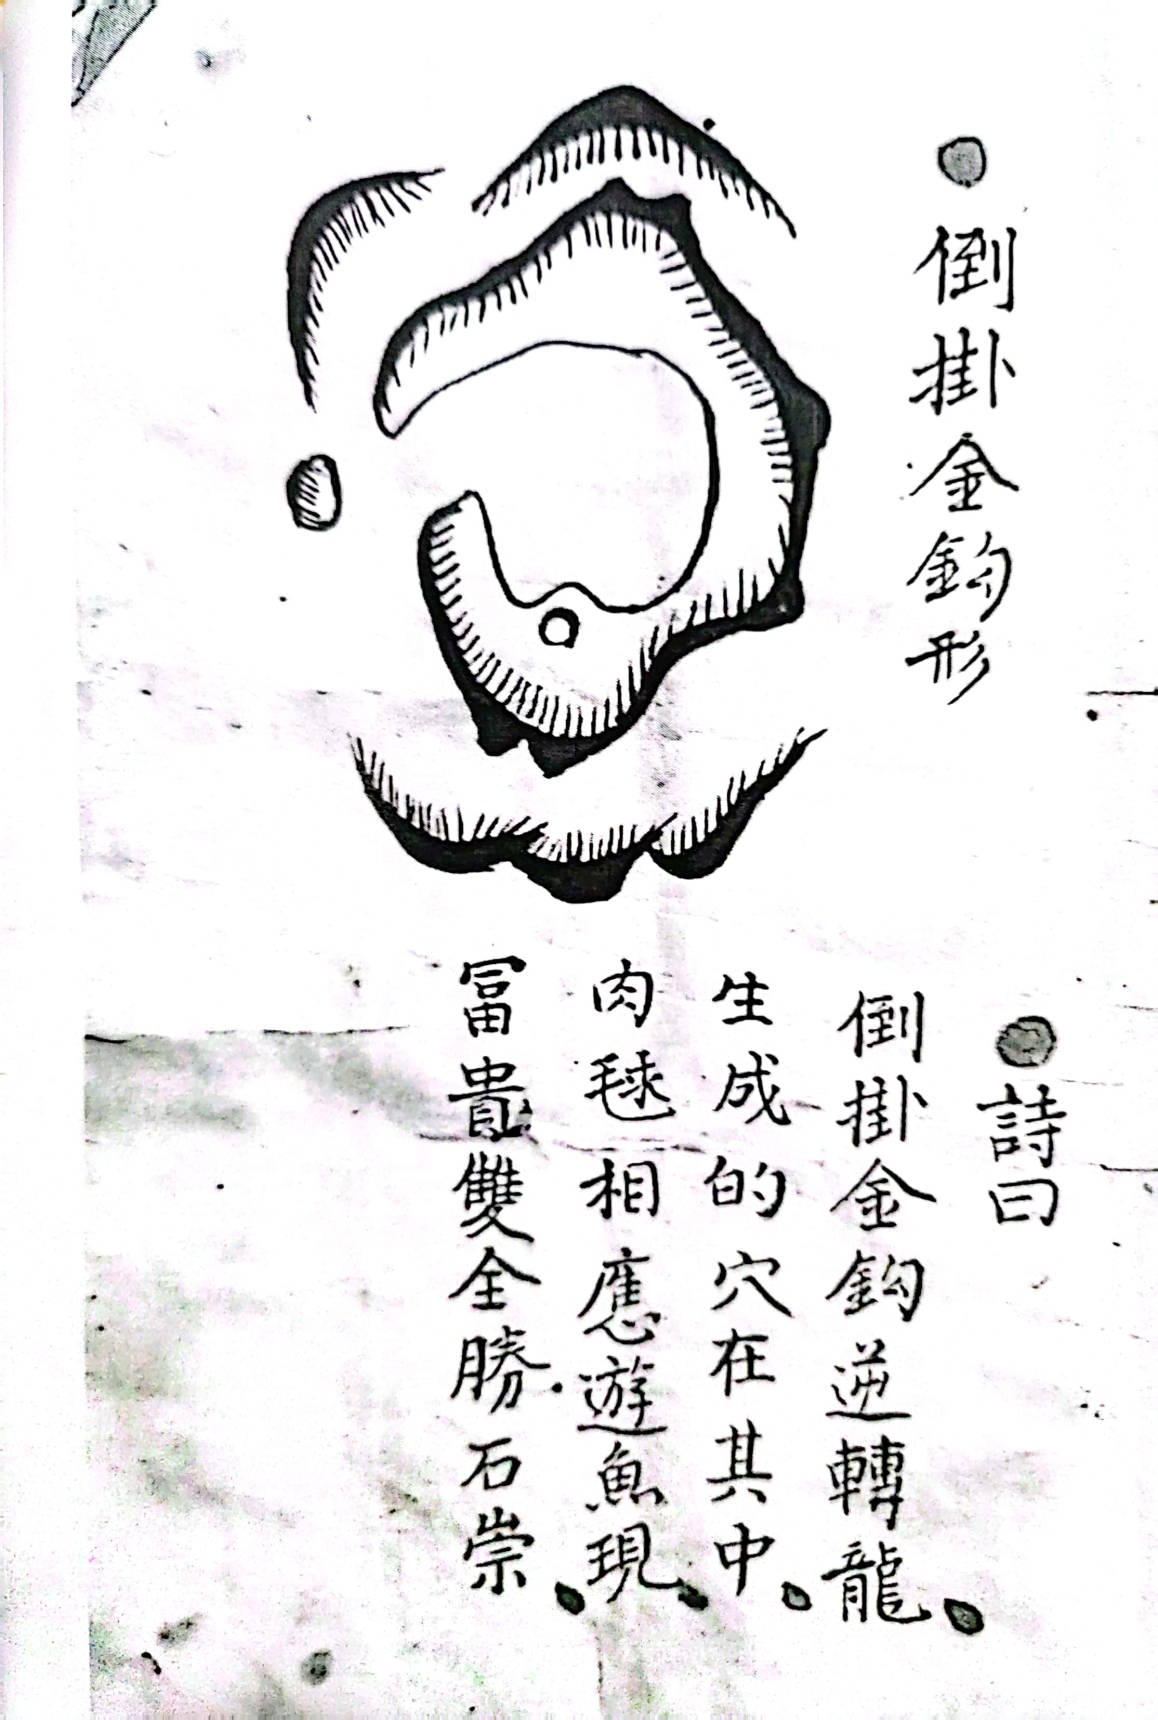 倒掛金鈎形
詩曰
倒掛金鈎逆轉龍
生成的穴在其中
肉毬相應遊魚現
冨貴雙全勝石崇